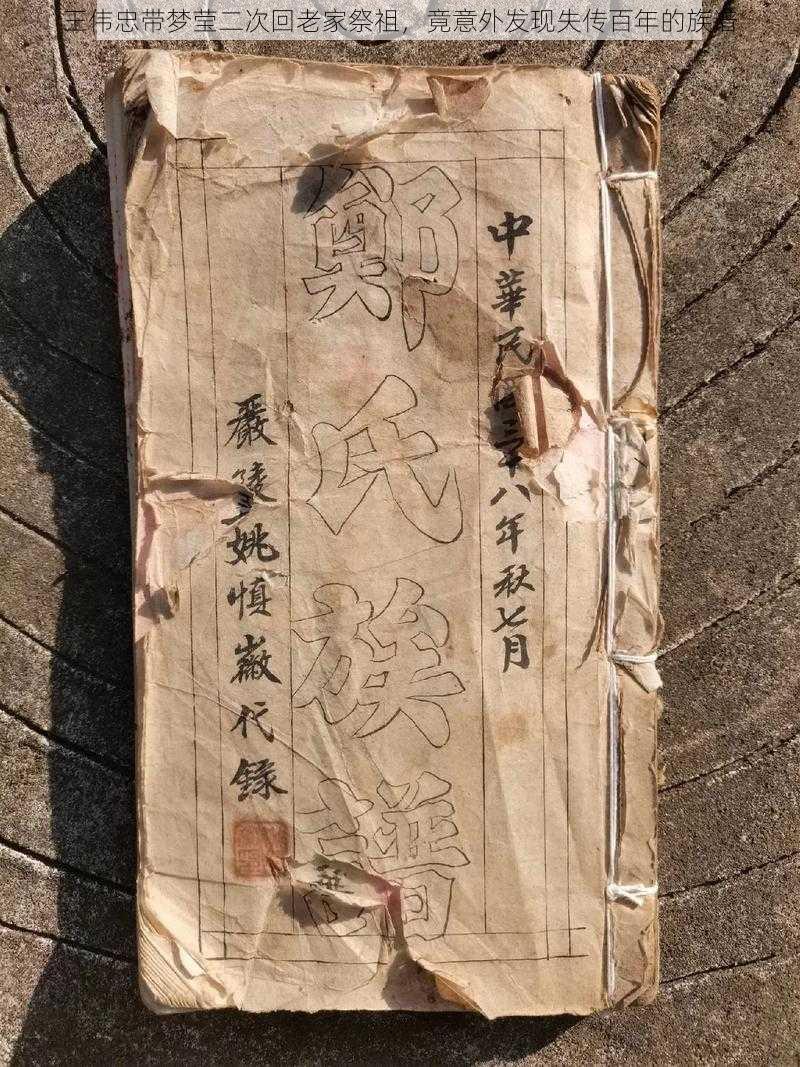 王伟忠带梦莹二次回老家祭祖，竟意外发现失传百年的族谱
中華民國三十八年秋七月
鄭氏族譜
嚴陵姚慎代錄